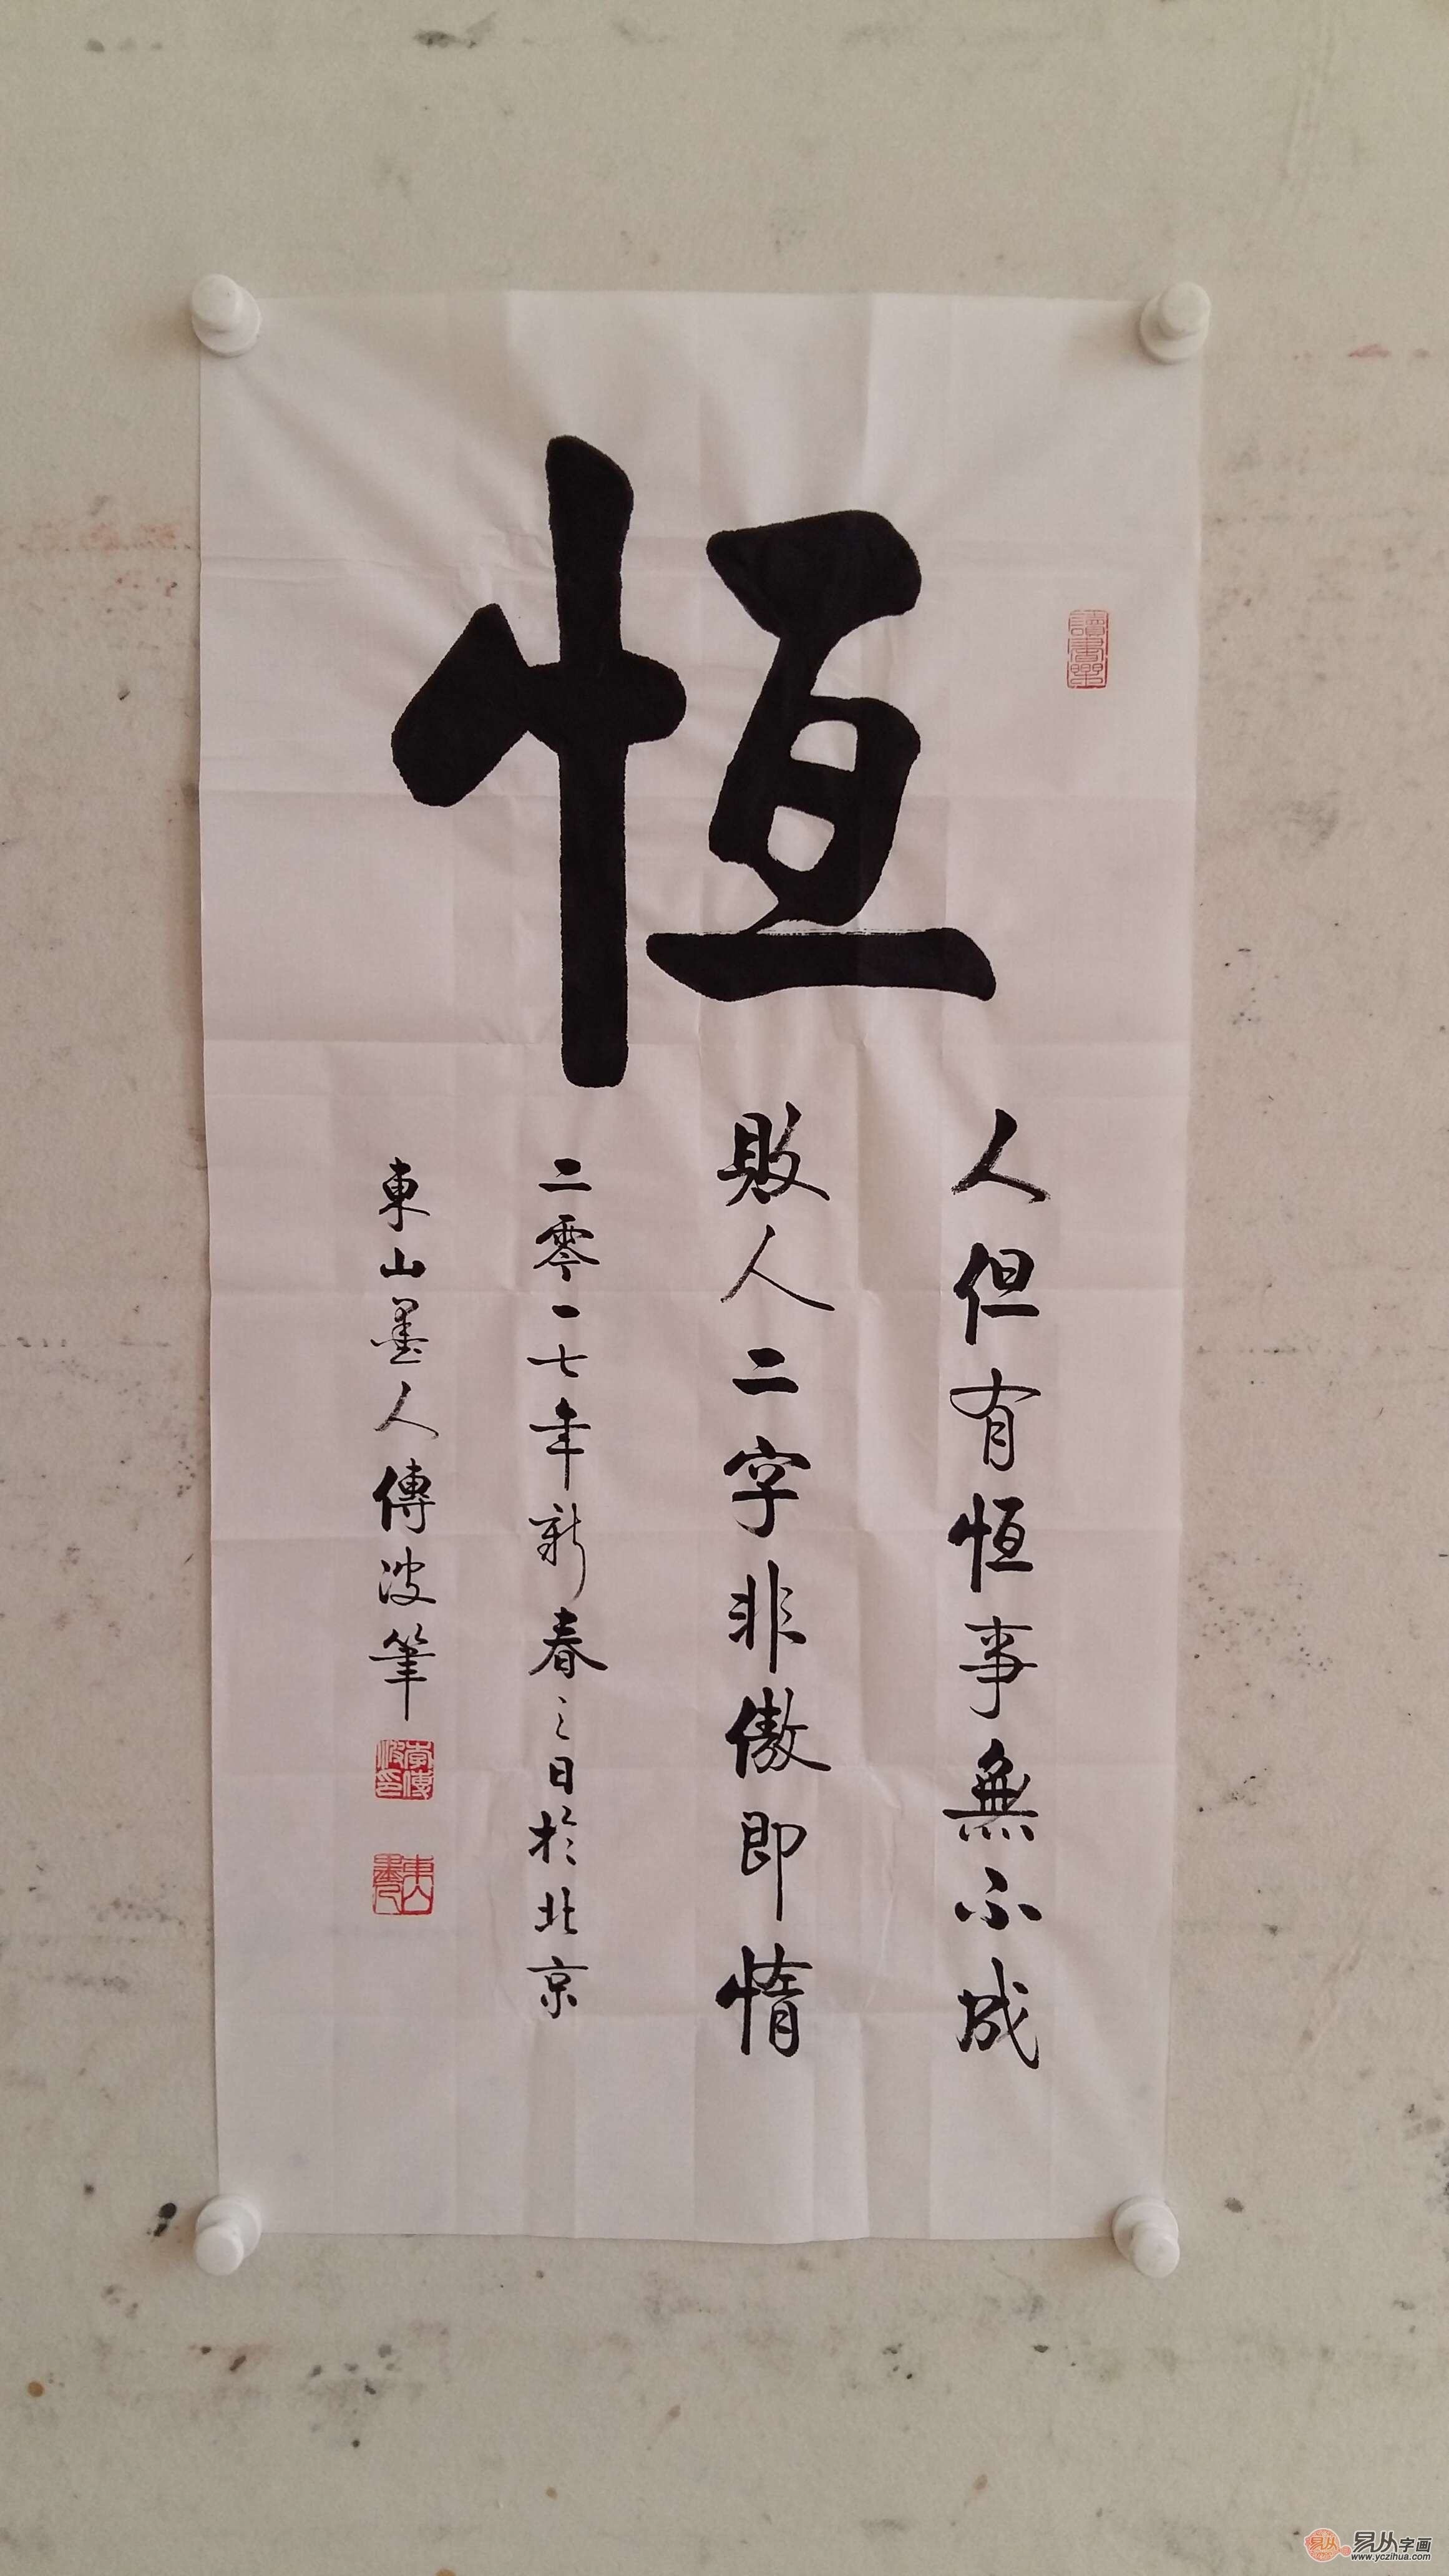 恒
人但有恒事無不成
敗人二字非傲即惰
二零一七年新春之日於北京
東山墨人傳波筆
讀書樂
李傳波印
易从
易从字画
www.yczihua.com